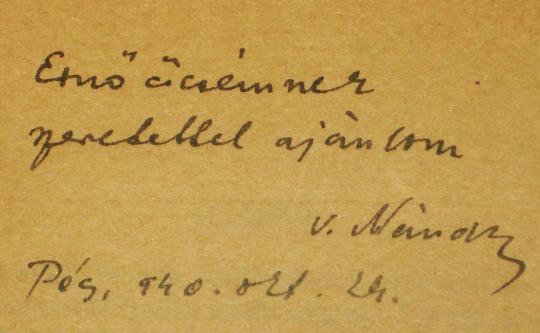 Ernő öcsémnek
szeretettel ajánlom
v. Nándor
Pécs, 940. okt. 24.